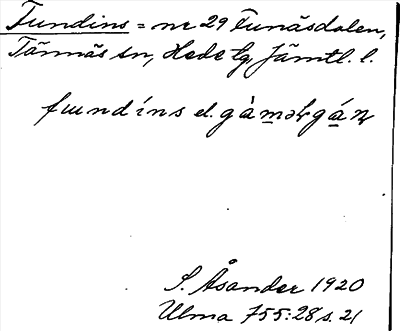 Fundins = nr 29 Funäsdalen,
Tännäs sn, Hede tg, Jämtl. l.
fɯndíns el. gàməlgáɳ
S. Åsander 1920
Ulma 755:28 s. 21